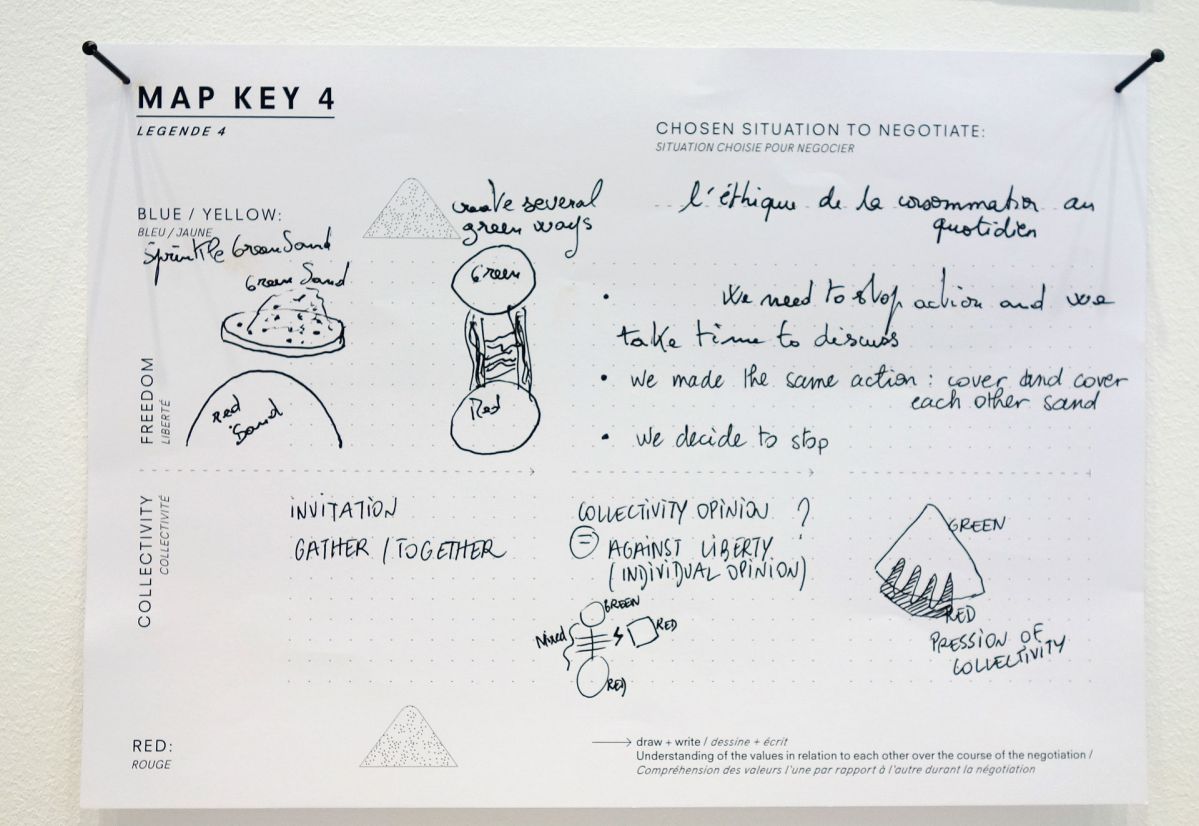 MAP KEY 4
LEGENDE 4
CHOSEN SITUATION TO NEGOTIATE:
SITUATION CHOISIE POUR NEGOCIER
l'éthique de la consommation au
quotidien
BLUE / YELLOW:
BLEU / JAUNE
several
green ways
Sprinkle Green Sand
Green Sand
Green
Red
Red
Sand
FREEDOM
LIBERTÉ
• We need to stop action and we
take time to discuss
• we made the same action : cover and cover
each other sand
• we decide to stop
COLLECTIVITY
COLLECTIVITÉ
INVITATION
GATHER / TOGETHER
COLLECTIVITY OPINION ?
= AGAINST LIBERTY
(INDIVIDUAL OPINION)
GREEN
Mixed
RED
RED
GREEN
RED
PRESSION OF
COLLECTIVITY
RED:
ROUGE
draw + write / dessine + écrit
Understanding of the values in relation to each other over the course of the negotiation /
Compréhension des valeurs l'une par rapport à l'autre durant la négotiation